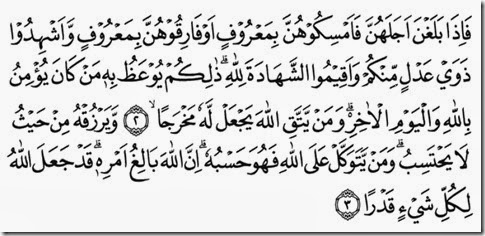 فَاِذَا بَلَغْنَ اَجَلَهُنَّ فَاَمْسِكُوْهُنَّ بِمَعْرُوْفٍ اَوْ فَارِقُوْهُنَّ بِمَعْرُوْفٍ وَّاَشْهِدُوْا
ذَوَيْ عَدْلٍ مِّنْكُمْ وَاَقِيْمُوا الشَّهَادَةَ لِلّٰهِ ۗ ذٰلِكُمْ يُوْعَظُ بِهٖ مَنْ كَانَ يُؤْمِنُ
بِاللّٰهِ وَالْيَوْمِ الْاٰخِرِ ۗ وَمَنْ يَّتَّقِ اللّٰهَ يَجْعَلْ لَّهٗ مَخْرَجًا ۙ ٢ وَّيَرْزُقْهُ مِنْ حَيْثُ
لَا يَحْتَسِبُ ۗ وَمَنْ يَّتَوَكَّلْ عَلَى اللّٰهِ فَهُوَ حَسْبُهٗ ۗ اِنَّ اللّٰهَ بَالِغُ اَمْرِهٖ ۗ قَدْ جَعَلَ اللّٰهُ
لِكُلِّ شَيْءٍ قَدْرًا ٣